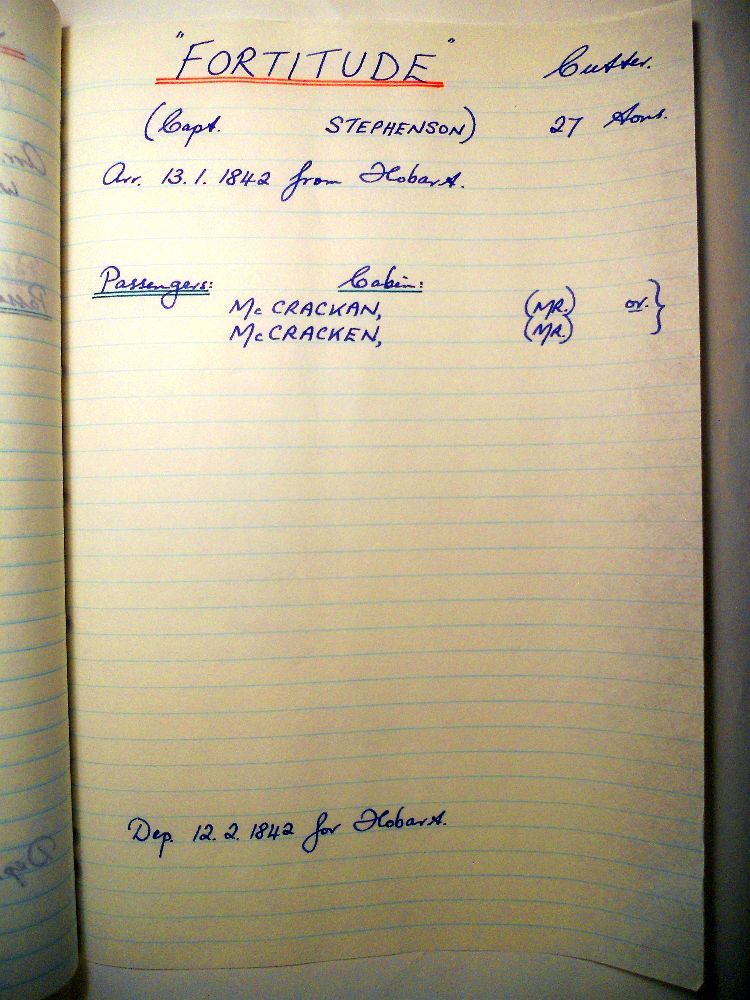 "FORTITUDE" Cutter.
(Capt. STEPHENSON) 27 tons.
Arr. 13.1.1842 from Hobart.
Passengers: Cabin:
McCRACKAN, (MR.) or. }
McCRACKEN, (MR.)
Dep. 12.2.1842 for Hobart.